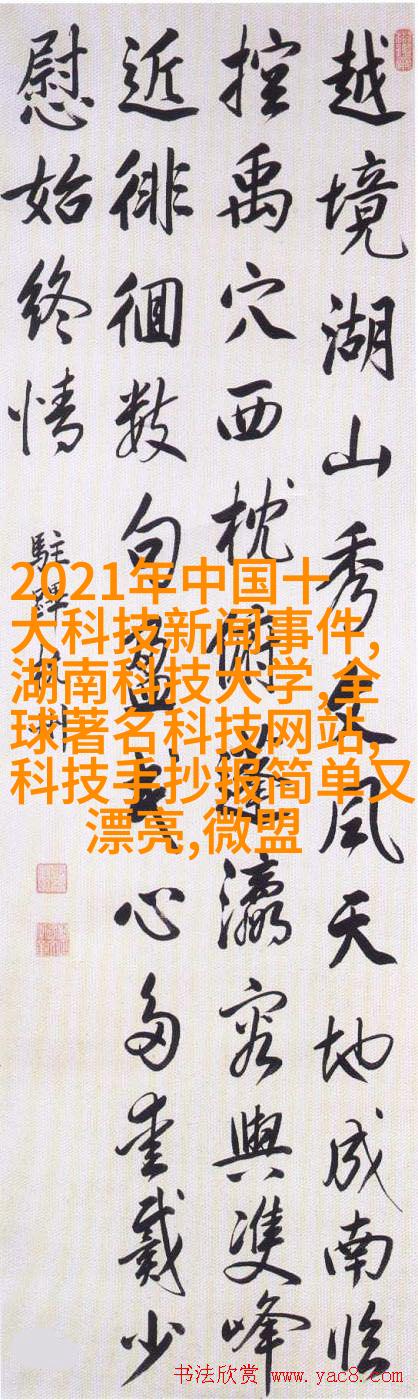 越境湖山秀文風天地成南臨
控禹穴西枕瀛容與雙峰
近徘徊數句心多愛戴少
慰始終情
駐蹕
2021年中国十
大科技新闻事件,
湖南科技大学,全
球著名科技网站,
科技手抄报简单又
漂亮,微盟
书法欣赏 www.yac8.com